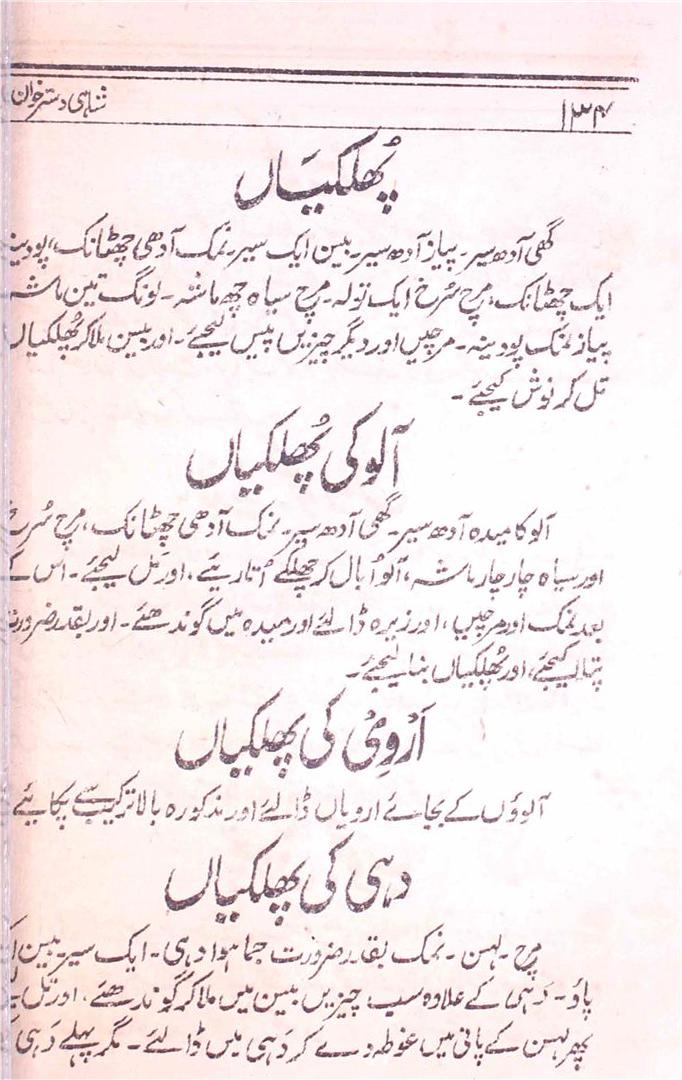 شاہی دسترخوان
۱۳۴
پُھلکیَاں
گھی آدھ سیر۔ پیاز آدھ سیر۔ بیسن ایک سیر۔ نمک آدھی چھٹانک، پودینہ
ایک چھٹانک، مرچ سُرخ ایک تولہ۔ مرچ سیاہ چھ ماشہ۔ لونگ تین ماشہ
پیاز نمک پودینہ۔ مرچیں اور دیگر چیزیں پیس لیجئے۔ اور بیسن ملا کر پُھلکیاں
تل کر نوش کیجئے۔
آلو کی پُھلکیاں
آلو کا میدہ آدھ سیر۔ گھی آدھ سیر۔ نمک آدھی چھٹانک، مرچ سُرخ
اور سیاہ چار چار ماشہ، آلو اُبال کر چھلکے اُتاریئے، اور مَل لیجئے۔ اس کے
بعد نمک اور مرچیں، اور زیرہ ڈالئے اور میدہ میں گوندھئے۔ اور بقدر ضرورت
پتلا کیجئے، اور پُھلکیاں بنا لیجئے۔
اَرْوِیْ کی پھلکیاں
آلوؤں کے بجائے ارویاں ڈالئے اور مذکورہ بالا ترکیب سے پکایئے
دہی کی پھلکیاں
مرچ۔ لہسن۔ نمک بقدر ضرورت جما ہوا دہی۔ ایک سیر۔ بیسن
پاؤ۔ دَہی کے علاوہ سب چیزیں بیسن میں ملا کر گوندھئے، اور تل
پھر لہسن کے پانی میں غوطہ دے کر دَہی میں ڈالئے۔ مگر پہلے دَہی